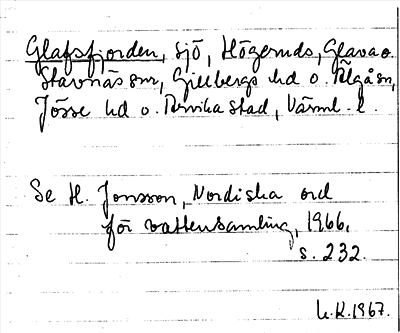 Glafsfjorden, sjö, Högeruds, Glava o.
Stavnäs snr, Gillbergs hd o. Älgå sn,
Jösse hd o. Arvika stad, Värml. l.
Se H. Jonsson, Nordiska ord
för vattensamling, 1966,
s. 232.
1967.